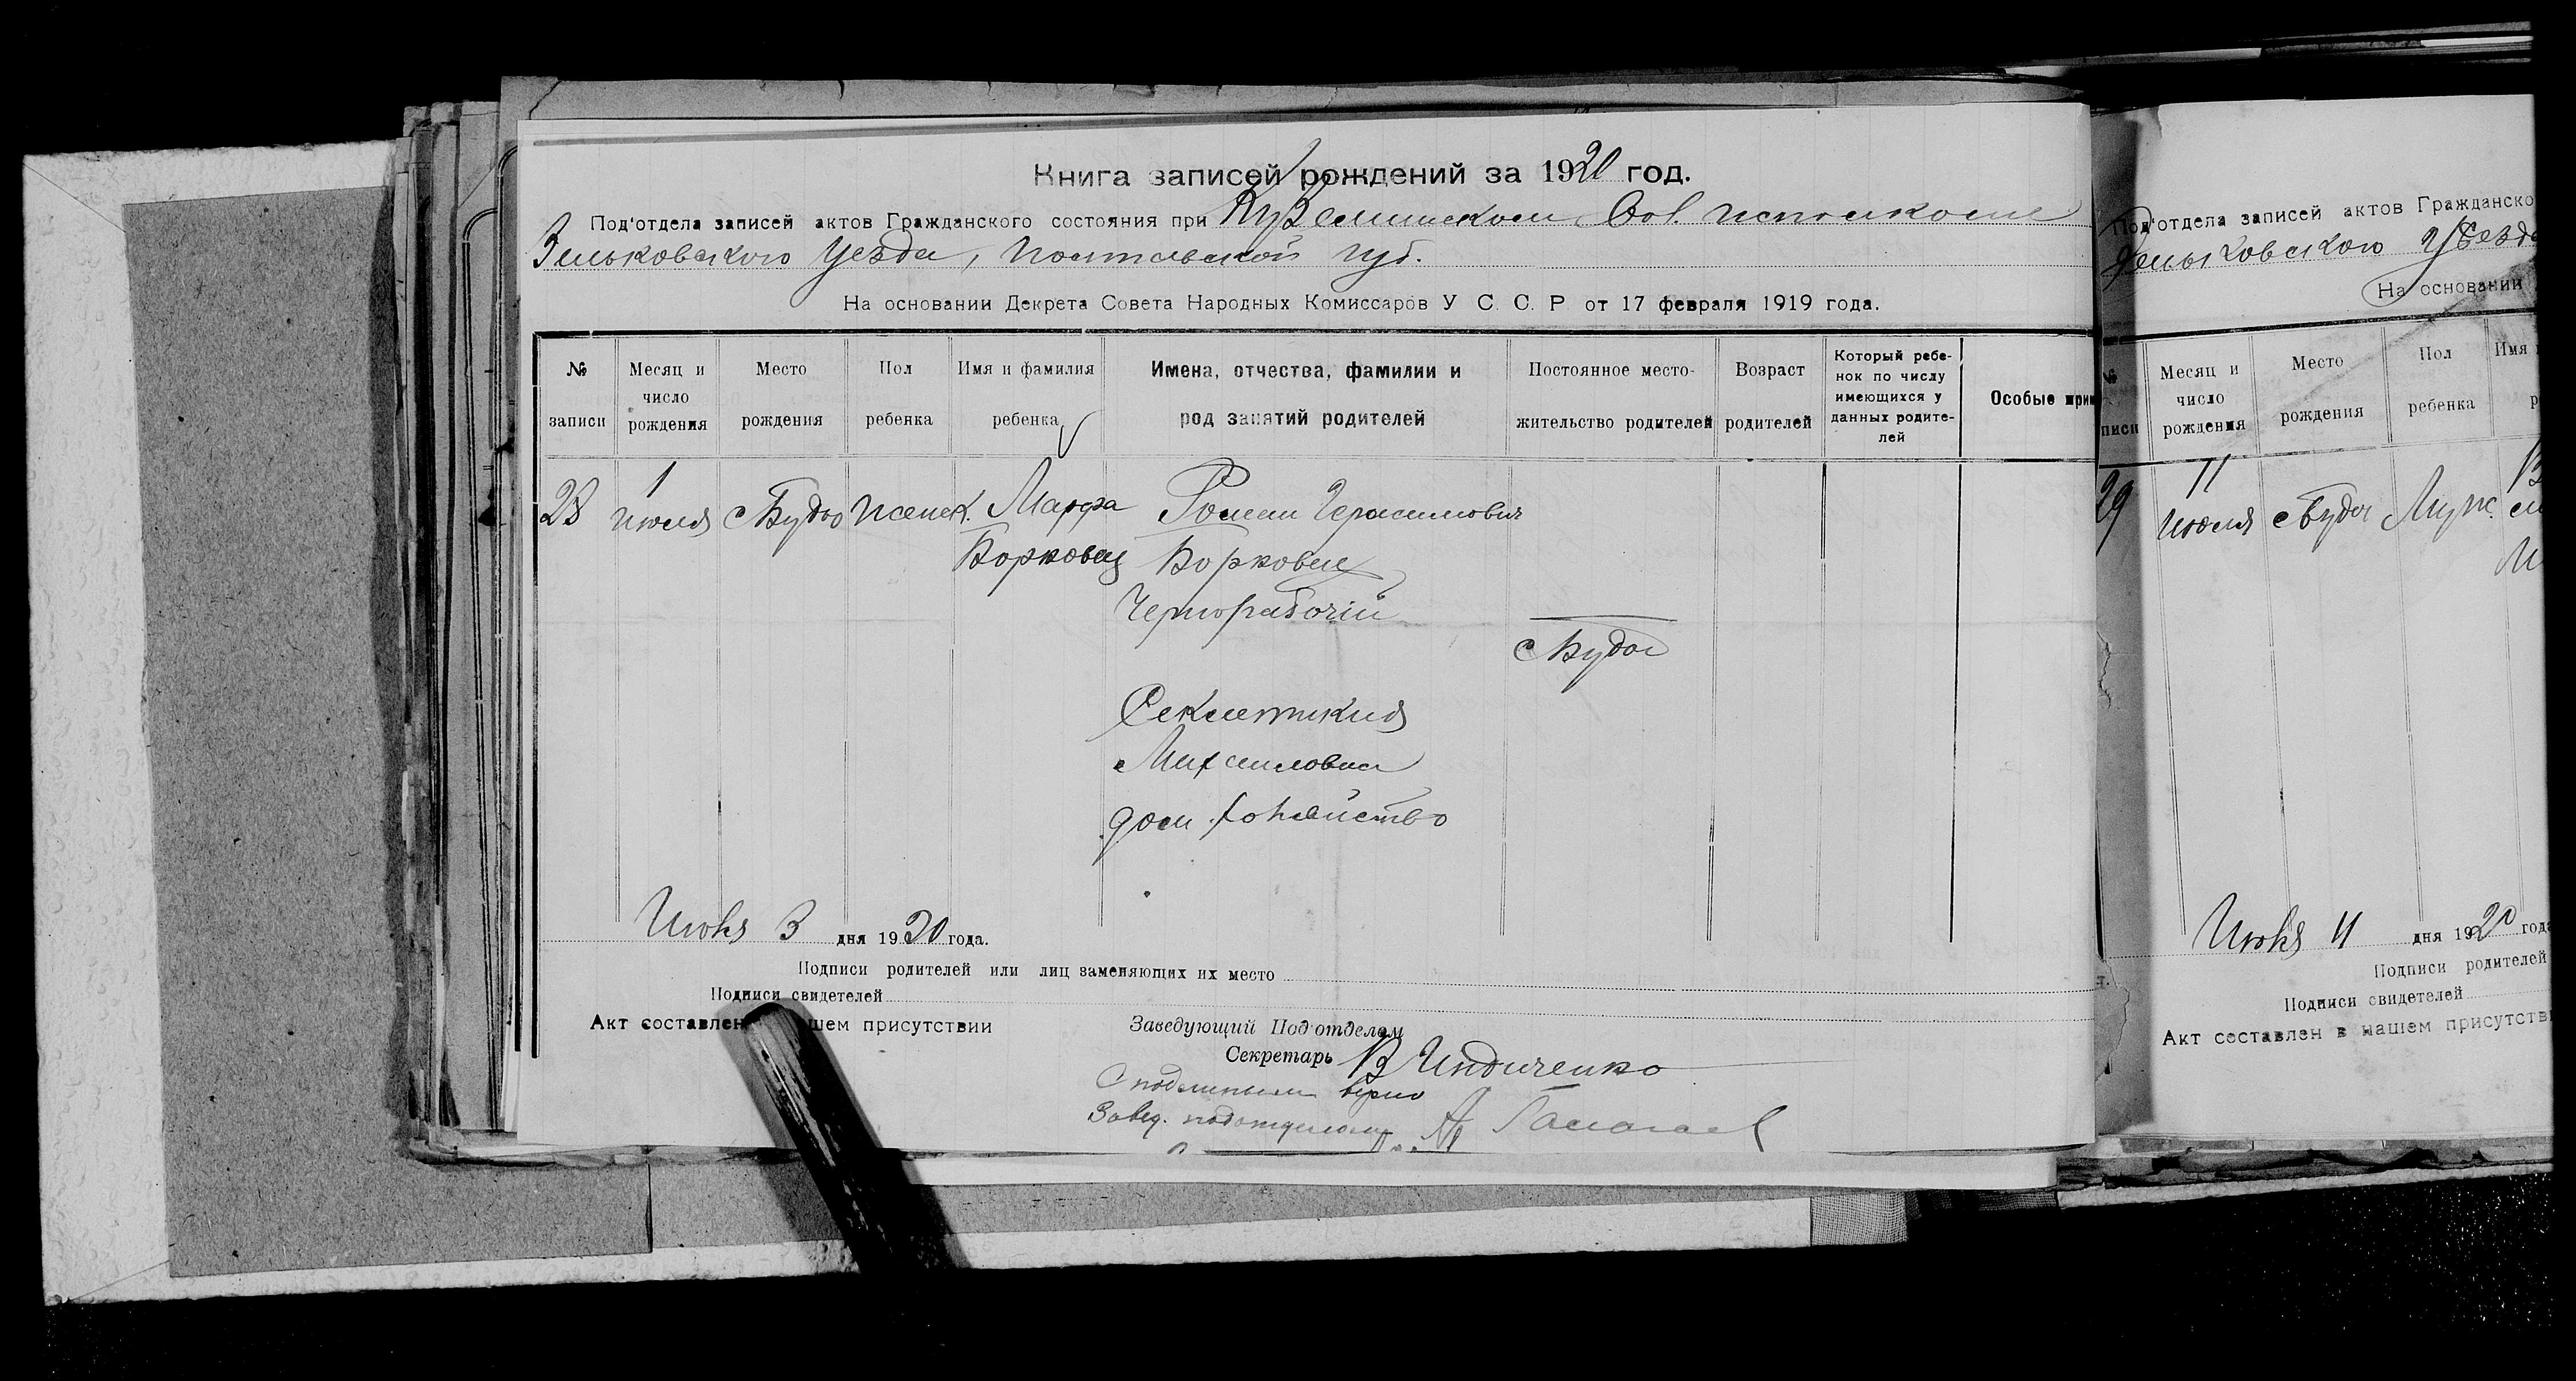 Книга записей рождений за 1920 год.
Под'отдела записей актов Гражданского состояния при Куземинском Вол. исполкоме
Зеньковского уезда, Полтавской губ.
На основании Декрета Совета Народных Комиссаров У С. С. Р от 17 февраля 1919 года.
№ записи
Месяц и число рождения
Место рождения
Пол ребенка
Имя и фамилия ребенка
Имена, отчества, фамилии и род занятий родителей
Постоянное место-жительство родителей
Возраст родителей
Который ребе-нок по числу имеющихся у данных родите-лей
Особые прим
28
1 июля
с Буды
женск.
Марфа
Борковец
Роман Герасимович
Борковец
Чернорабочій
с Буды
Секлетикия
Михаиловна
дом. хозяйство
Июля 3 дня 1920 года.
Подписи родителей или лиц заменяющих их место
Подписи свидетелей
Акт составлен нашем присутствии
Заведующий Под'отделом
Секретарь В Индиченко
С подлинным верно
Завед. подотделом А
Под'отдела записей актов Гражданско
Зеньковского уезда
На основании
№ писи
Месяц и число рождения
Место рождения
Пол ребенка
Имя
29
11 Июля
с Буды
Муж.
Июля 11 дня 1920 года
Подписи родителей
Подписи свидетелей
Акт составлен в нашем присутстви